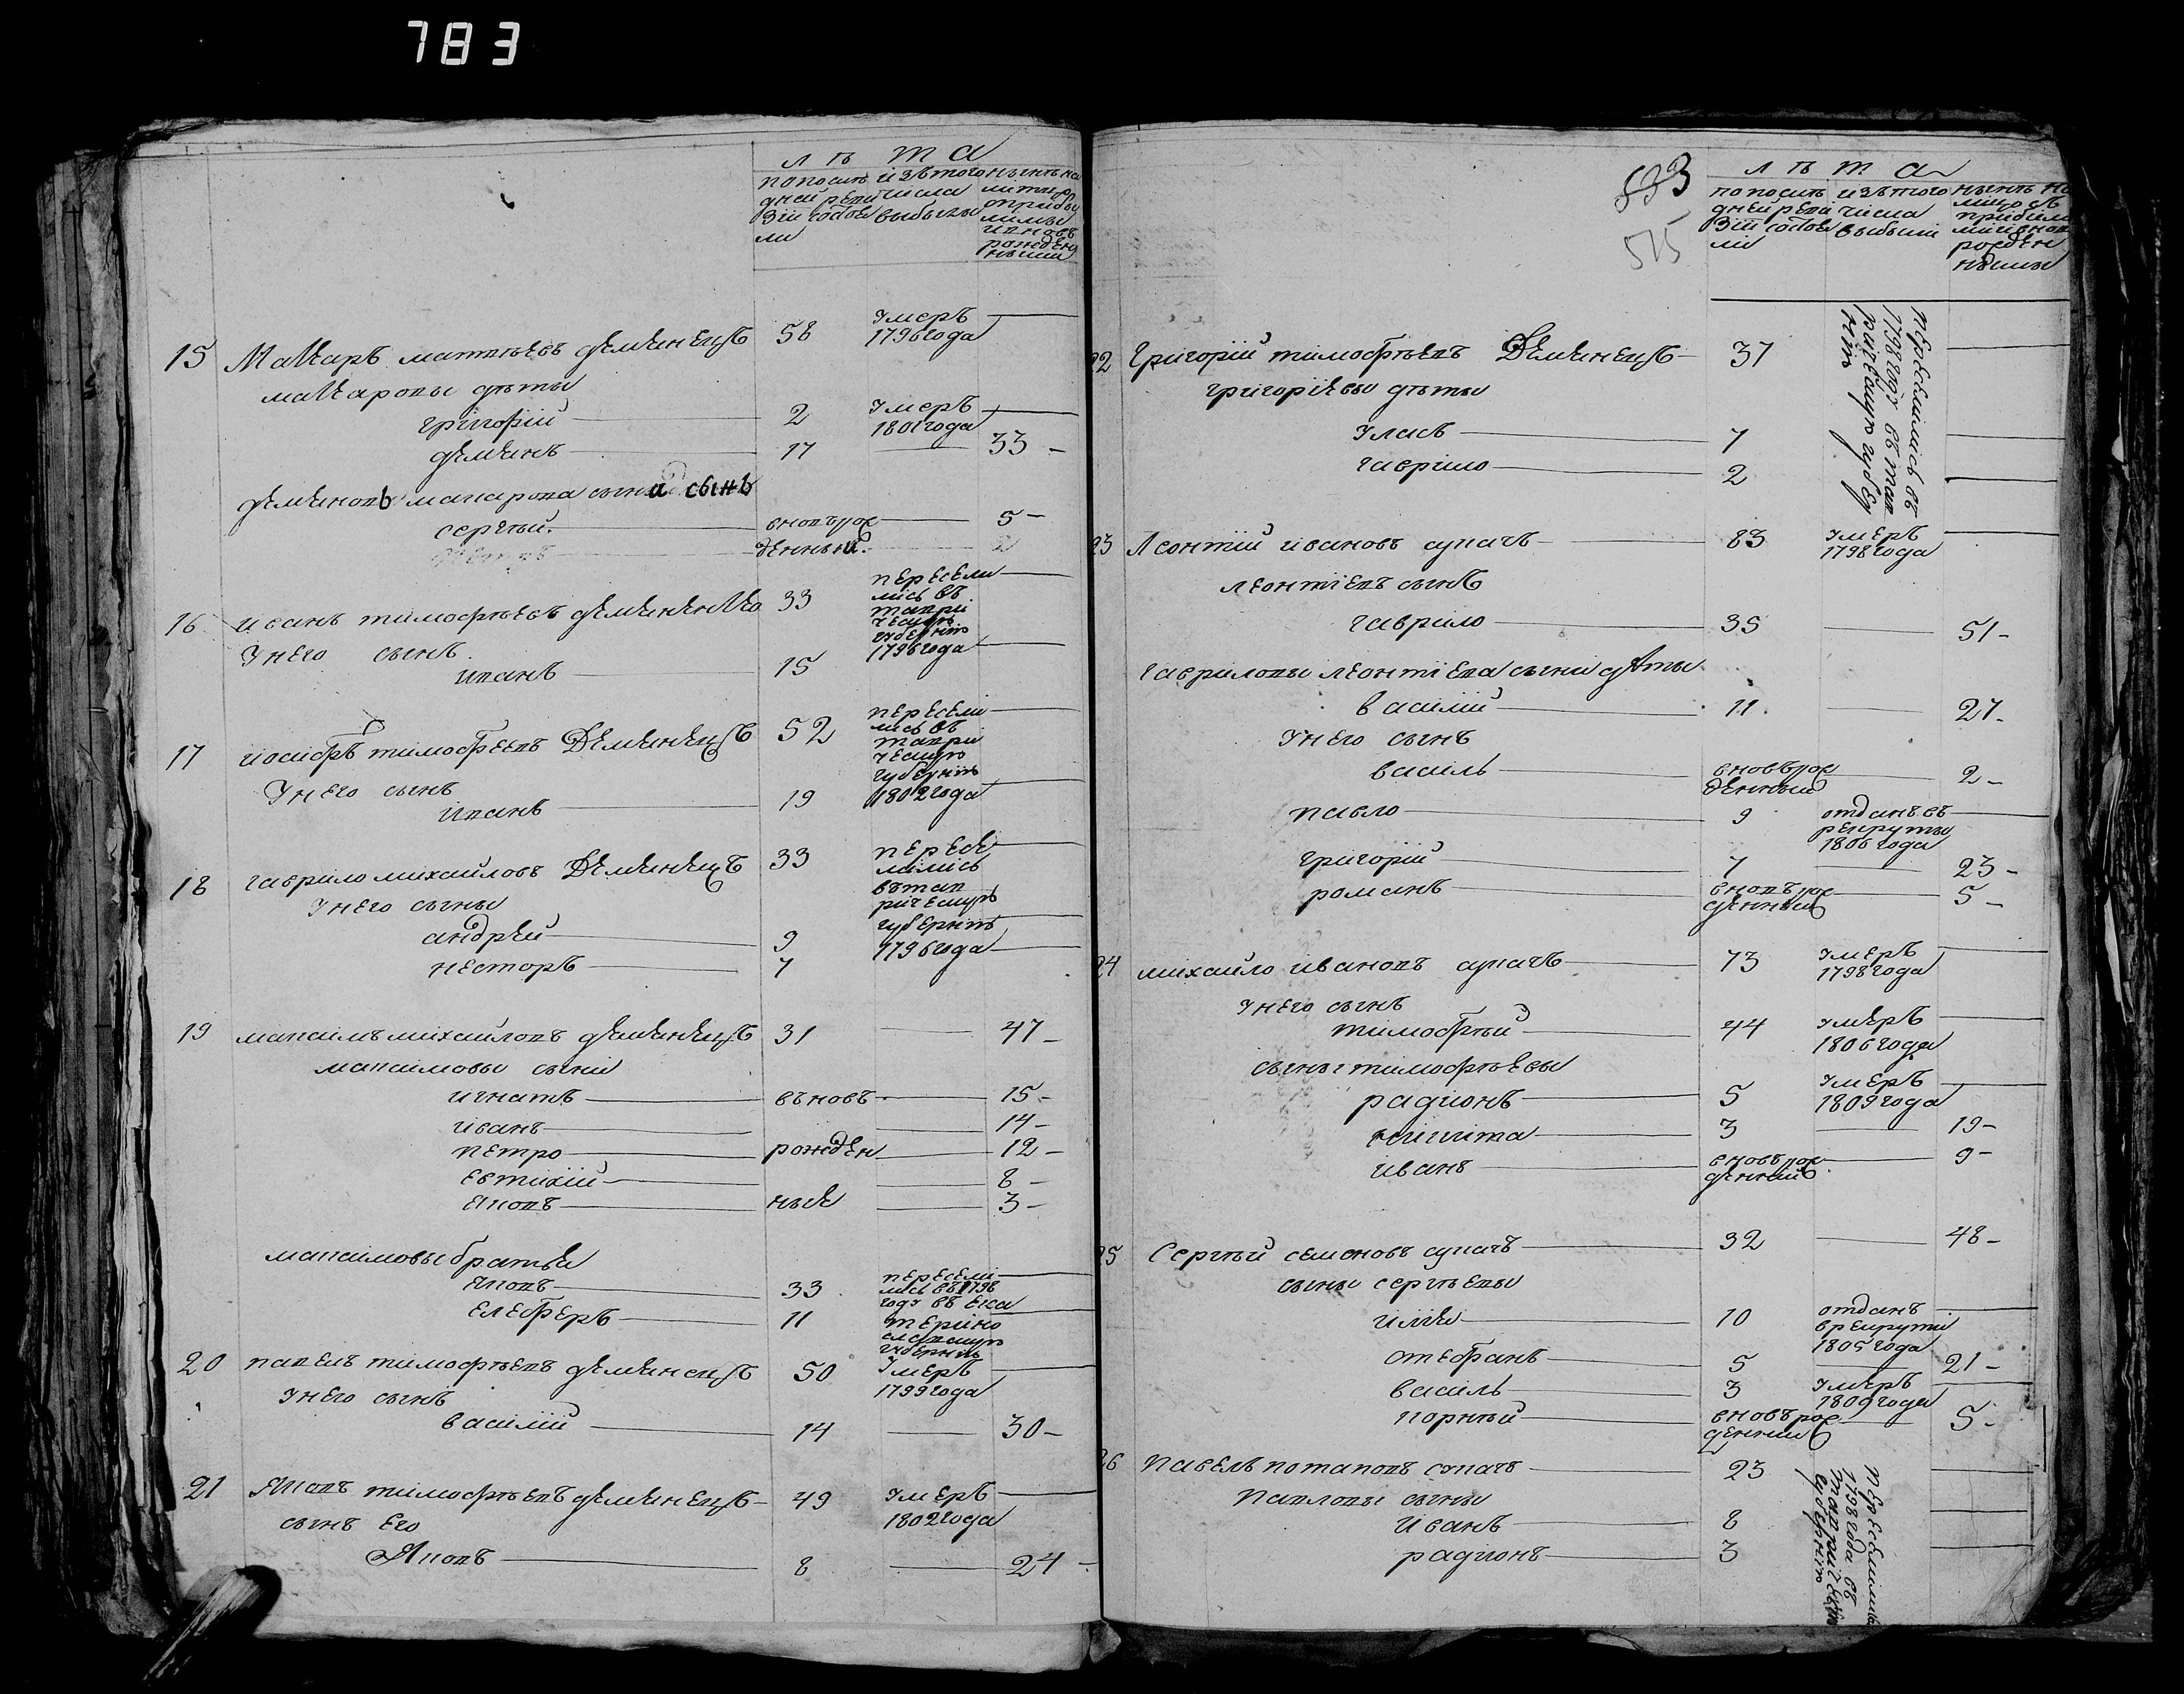 783
лѣта
попослѣ изъ того нынѣ на
дней реви числа лицо съ
зіи состоя выбыли прибы
ли лыми
и вновь
рожден
ными
15 Макаръ матвѣевъ деменецъ 58 умеръ
1796 года
макаровы дѣты
григорій 2 умеръ
1801 года
деменъ 17 33
деменовъ макарова сына сынъ
сергѣй вновъ рож 5
денный
16 иванъ тимофѣевъ деменеико 33 пересели
лись въ
таври
ческую
губернію
1796 года
У него сынъ
иванъ 15
17 иосифъ тимофѣевъ Деменецъ 52 пересели
лись въ
таври
ческую
губернію
1802 года
У него сынъ
иванъ 19
18 гаврило михайловъ Деменецъ 33 пересе
лились
въ тав
рическую
губернію
1796 года
У него сыны
андрей 9
несторъ 7
19 максимъ михайловъ деменецъ 31 47
максимовы сыни
игнатъ въновъ 15
иванъ 14
петро рожден 12
евтихій 8
яковъ ные 3
максимовы братья
яковъ 33 пересели
лись въ 1798
году въ ека
терино
славскую
губернію
елеферъ 11
20 павелъ тимофѣевъ деменецъ 50 Умеръ
1799 года
У него сынъ
василій 14 30
21 Яковъ тимофѣевъ деменецъ 49 умеръ
1802 года
сынъ его
Яковъ 8 24
833
515
лѣта
попослѣ изъ того нынѣ на
дней реви числа лицо съ
зіи состоя выбыли прибыли
ли ми и вновь
рожден
ными
22 Григорій тимофѣевъ Деменецъ 37 переселились въ
1798 году въ тав
рическую губер
нію
григоріевы дѣты
Уласъ 7
гаврило 2
23 Леонтій ивановъ сукачъ 83 умеръ
1798 года
леонтіевъ сынъ
гаврило 35 51
гавриловы леонтіева сына дѣты
василій 11 27
У него сынъ
василь вновъ рож 2
денный
павло 9 отданъ въ
рекруты
1806 года
григорій 7 23
романъ вновъ рож 5
денный
24 михайло ивановъ сукачъ 73 умеръ
1798 года
У него сынъ
тимофѣй 44 умеръ
1806 года
сыны тимофѣевы
радионъ 5 умеръ
1809 года
никита 3 19
иванъ вновъ рож 9
денный
25 Сергѣй семеновъ сукачъ 32 48
сыны сергѣевы
илія 10 отданъ
в рекруты
1805 года
стефанъ 5 21
василь 3 умеръ
1809 года
корнѣй вновъ рож 5
денный
26 Павелъ потаповъ сукачъ 23 переселились
1798 года въ
таврическую
губернію
Павловы сыны
Иванъ 8
радіонъ 3